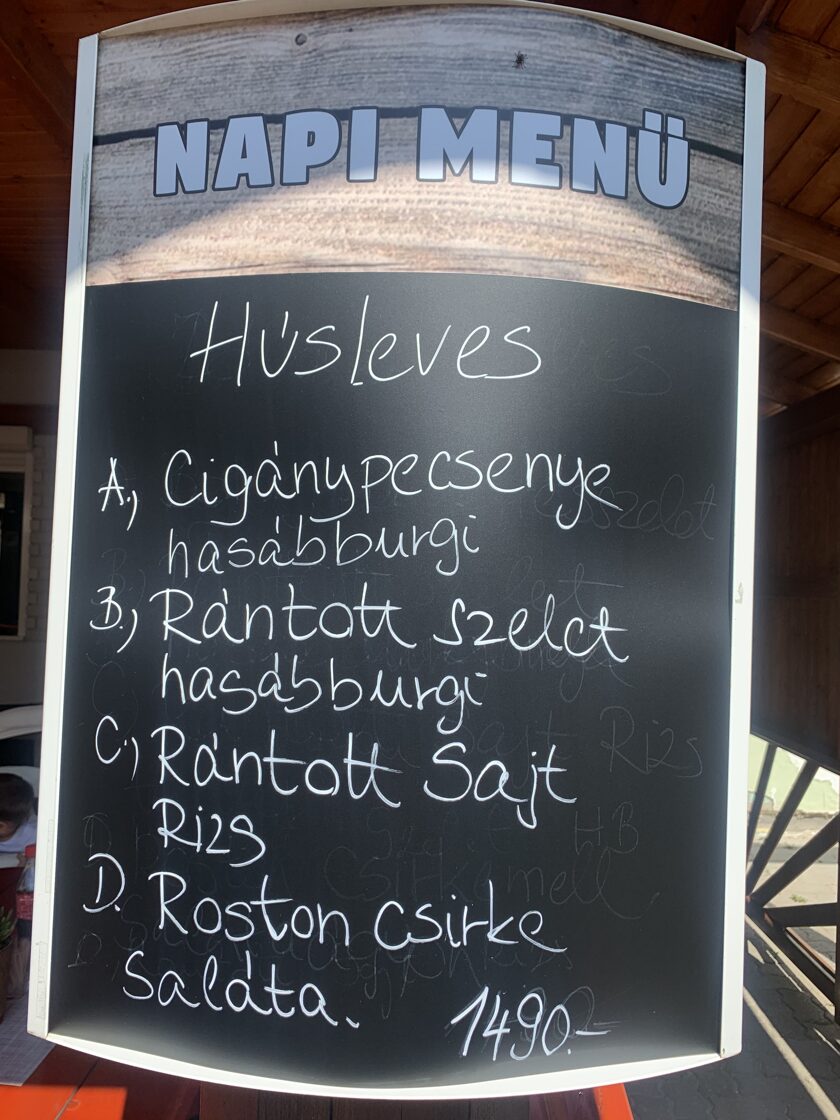 NAPI MENÜ
Húsleves
A., Cigánypecsenye
hasábburgi
B., Rántott szelet
hasábburgi
C., Rántott Sajt
Rizs
D. Roston csirke
saláta.
1490.-